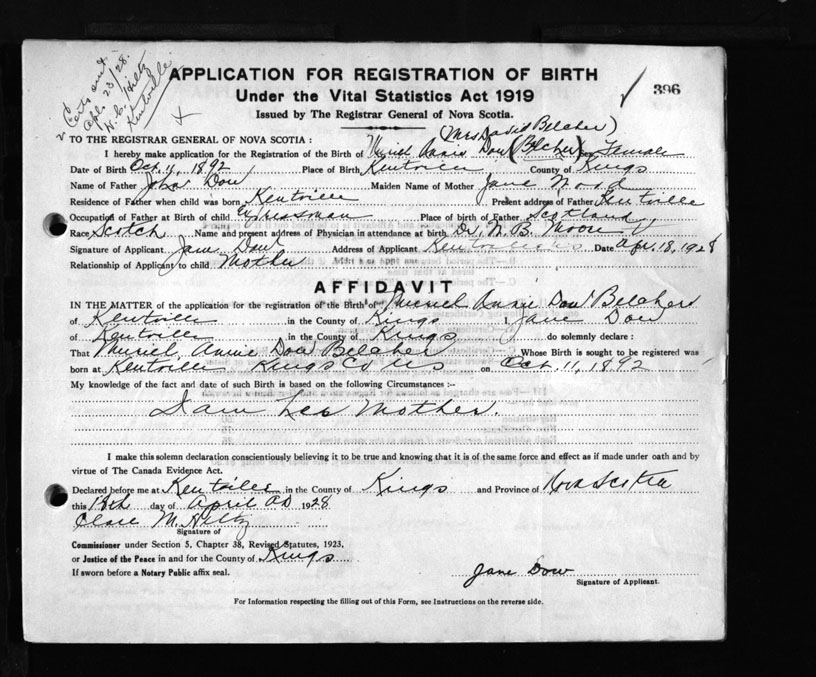 2 Certs and
Apl. 23/28.
H. C. Hiltz
Kentville
APPLICATION FOR REGISTRATION OF BIRTH
396
Under the Vital Statistics Act 1919
Issued by The Registrar General of Nova Scotia.
(Mrs David Belcher)
TO THE REGISTRAR GENERAL OF NOVA SCOTIA :
I hereby make application for the Registration of the Birth of Muriel Annie Dow (Belcher) Sex Female
Date of Birth Oct. 11, 1892 Place of Birth Kentville County of Kings
Name of Father John Dow Maiden Name of Mother Jane Wood
Residence of Father when child was born Kentville Present address of Father Kentville
Occupation of Father at Birth of child Expressman Place of birth of Father Scotland
Race Scotch Name and present address of Physician in attendance at birth Dr. N. B. Moore
Signature of Applicant Jane Dow Address of Applicant Kentville N.S. Date Apr. 18, 1928
Relationship of Applicant to child Mother
AFFIDAVIT
IN THE MATTER of the application for the registration of the Birth of Muriel Annie Dow Belcher
of Kentville in the County of Kings Jane Dow
of Kentville in the County of Kings do solemnly declare :
That Muriel Annie Dow Belcher Whose Birth is sought to be registered was
born at Kentville Kings Co NS on Oct. 11, 1892
My knowledge of the fact and date of such Birth is based on the following Circumstances :—
I am her Mother.
I make this solemn declaration conscientiously believing it to be true and knowing that it is of the same force and effect as if made under oath and by
virtue of The Canada Evidence Act.
Declared before me at Kentville in the County of Kings and Province of Nova Scotia
this 18th day of April AD 1928
Clare M. Hiltz
Signature of
Commissioner under Section 5, Chapter 38, Revised Statutes, 1923,
or Justice of the Peace in and for the County of Kings
If sworn before a Notary Public affix seal.
Jane Dow
Signature of Applicant.
For Information respecting the filling out of this Form, see Instructions on the reverse side.